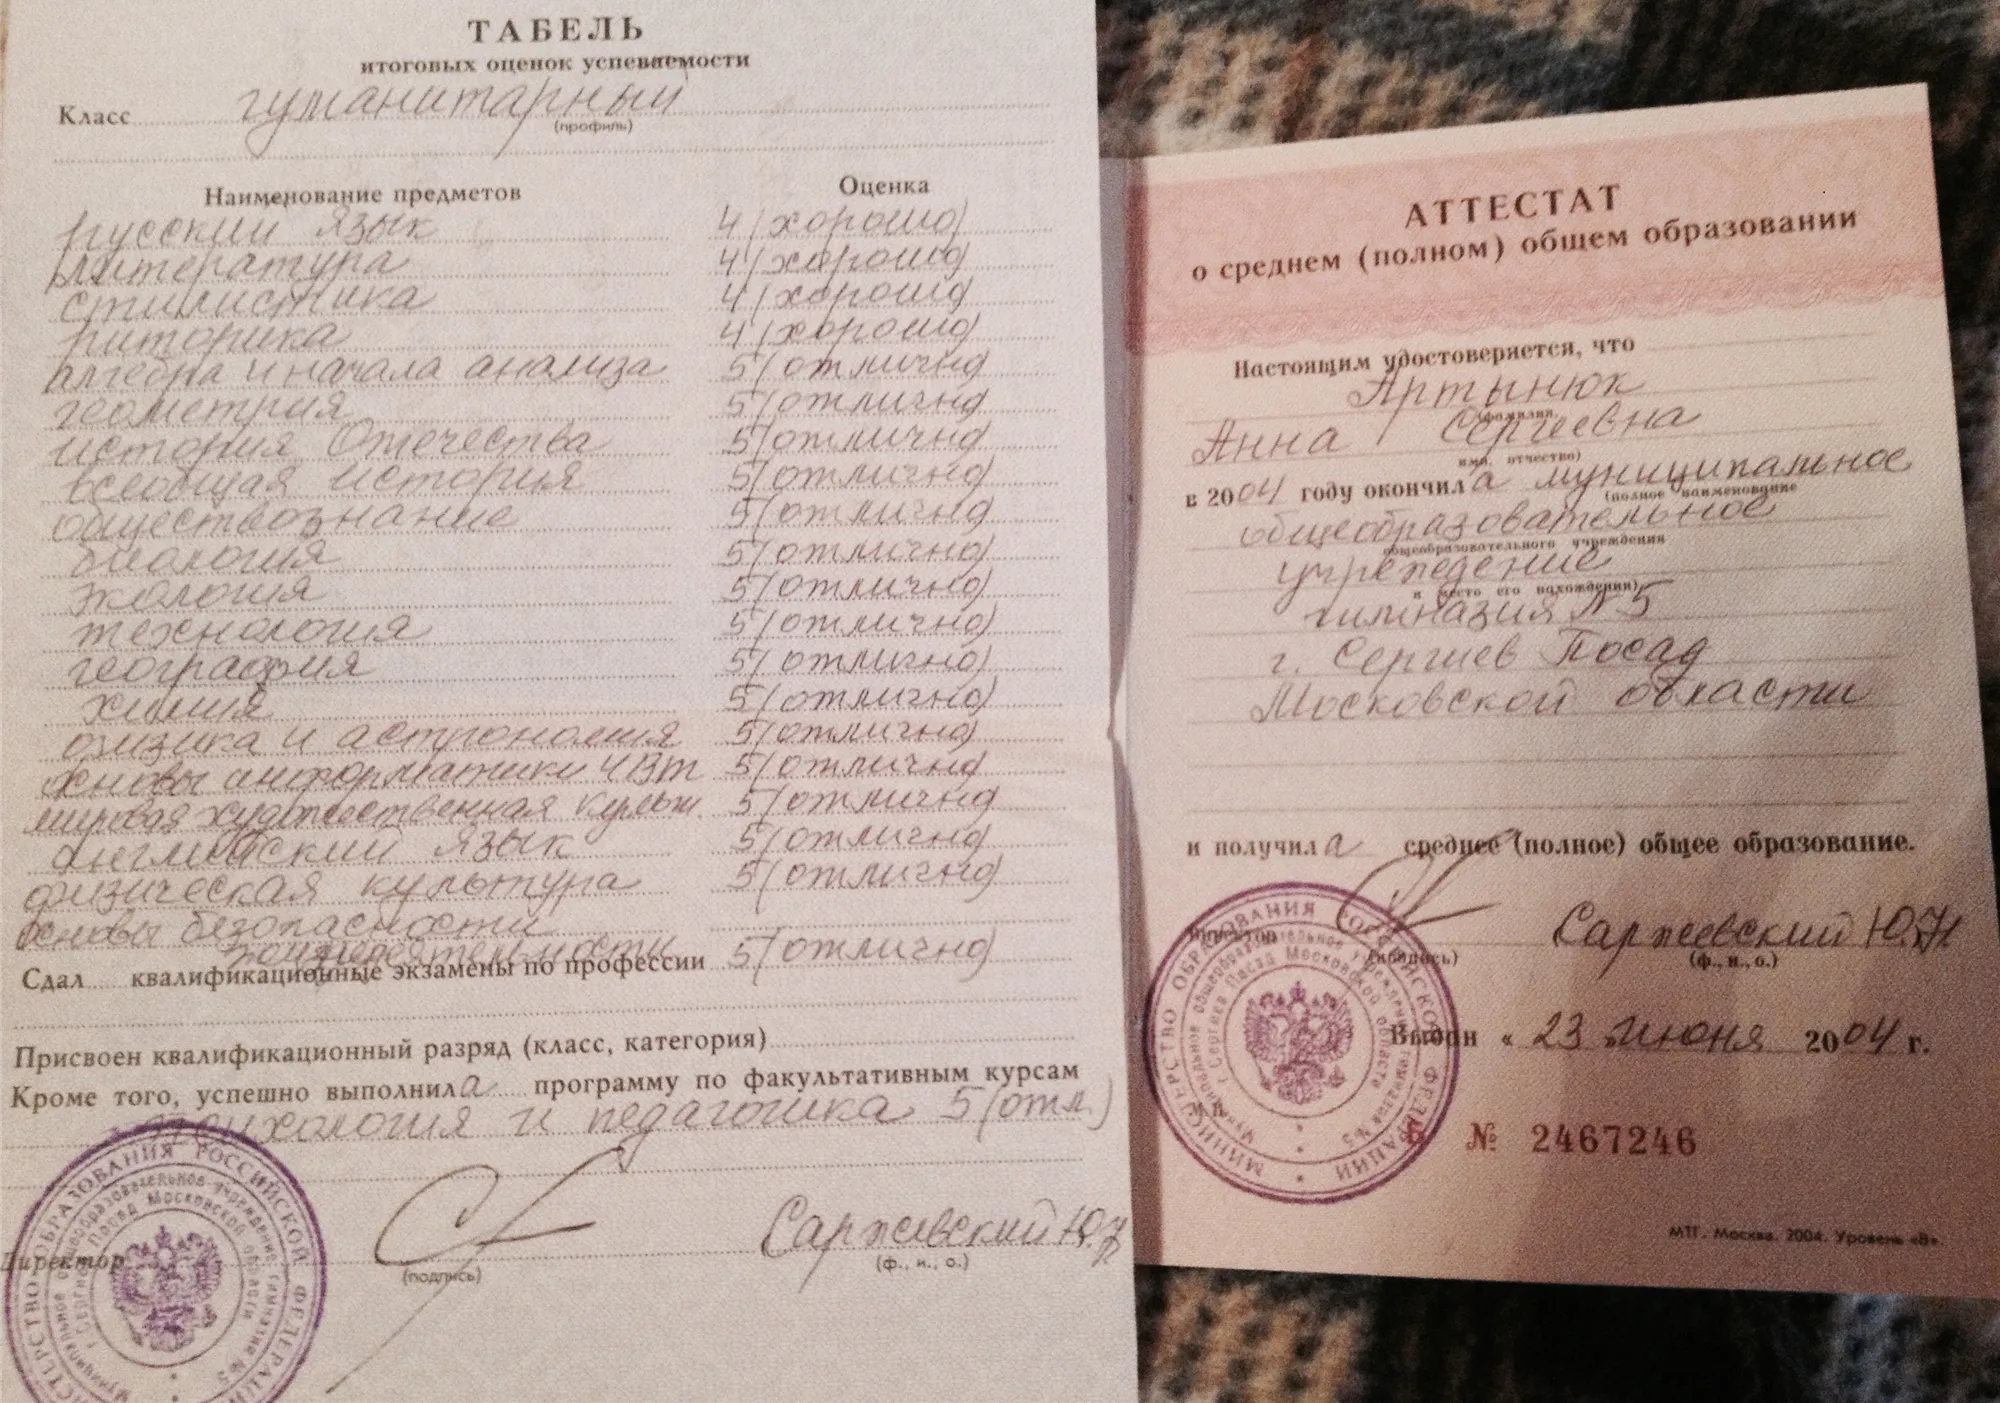 ТАБЕЛЬ
итоговых оценок успеваемости
Класс гуманитарный
(профиль)
Наименование предметов Оценка
русский язык 4 (хорошо)
литература 4 (хорошо)
стилистика 4 (хорошо)
риторика 4 (хорошо)
алгебра и начала анализа 5 (отлично)
геометрия 5 (отлично)
история Отечества 5 (отлично)
всеобщая история 5 (отлично)
обществознание 5 (отлично)
биология 5 (отлично)
экология 5 (отлично)
технология 5 (отлично)
география 5 (отлично)
химия 5 (отлично)
физика и астрономия 5 (отлично)
основы информатики и ВТ 5 (отлично)
мировая художественная культ. 5 (отлично)
английский язык 5 (отлично)
физическая культура 5 (отлично)
основы безопасности
жизнедеятельности 5 (отлично)
Сдал квалификационные экзамены по профессии
Присвоен квалификационный разряд (класс, категория)
Кроме того, успешно выполнила программу по факультативным курсам
психология и педагогика 5 (отл.)
Директор Саржевский Ю.Н
(подпись) (ф., и., о.)
МИНИСТЕРСТВО ОБРАЗОВАНИЯ РОССИЙСКОЙ ФЕДЕРАЦИИ
Муниципальное общеобразовательное учреждение гимназия №5
г Сергиев Посад Московской области
АТТЕСТАТ
о среднем (полном) общем образовании
Настоящим удостоверяется, что
Артынюк
(фамилия,
Анна Сергеевна
имя, отчество)
в 2004 году окончила муниципальное
(полное наименование
общеобразовательное
общеобразовательного учреждения
учреждение
и место его нахождения)
гимназия №5
г. Сергиев Посад
Московской области
и получила среднее (полное) общее образование.
Директор Саржевский Ю.Н
(подпись) (ф., и., о.)
Выдан « 23 » июня 2004 г.
М.П.
Б № 2467246
МИНИСТЕРСТВО ОБРАЗОВАНИЯ РОССИЙСКОЙ ФЕДЕРАЦИИ
Муниципальное общеобразовательное учреждение гимназия №5
г Сергиев Посад Московской области
МТГ. Москва. 2004. Уровень «В».